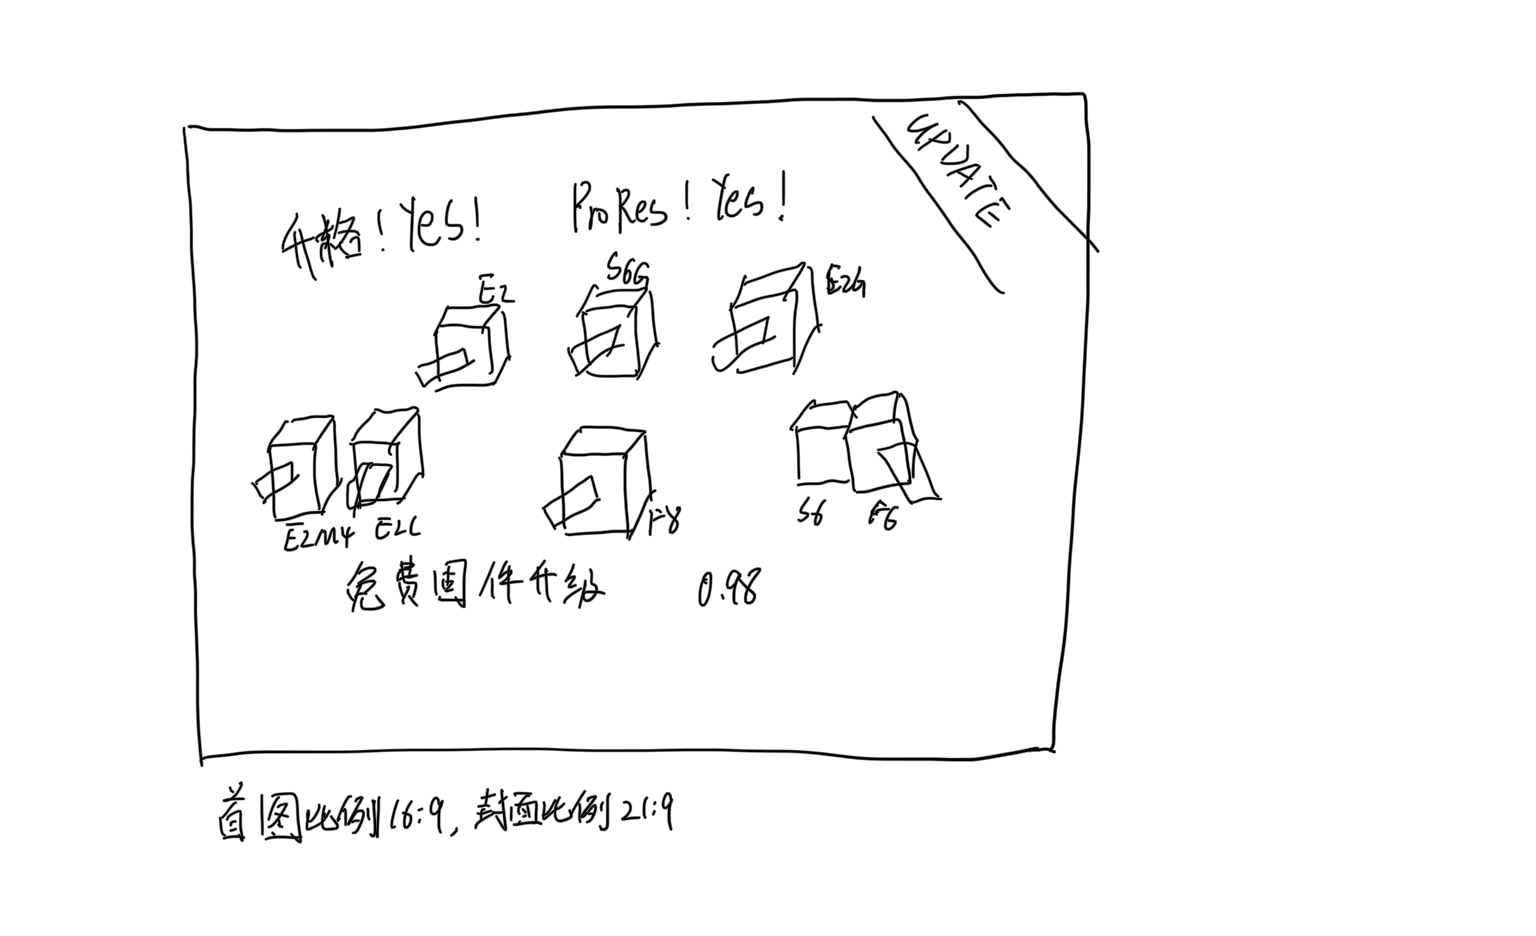 UPDATE
升格！Yes！ ProRes！Yes！
E2 S6G E2G
E2M4 E2C F8 S6 F6
免费固件升级 0.98
首图比例16:9，封面比例21:9